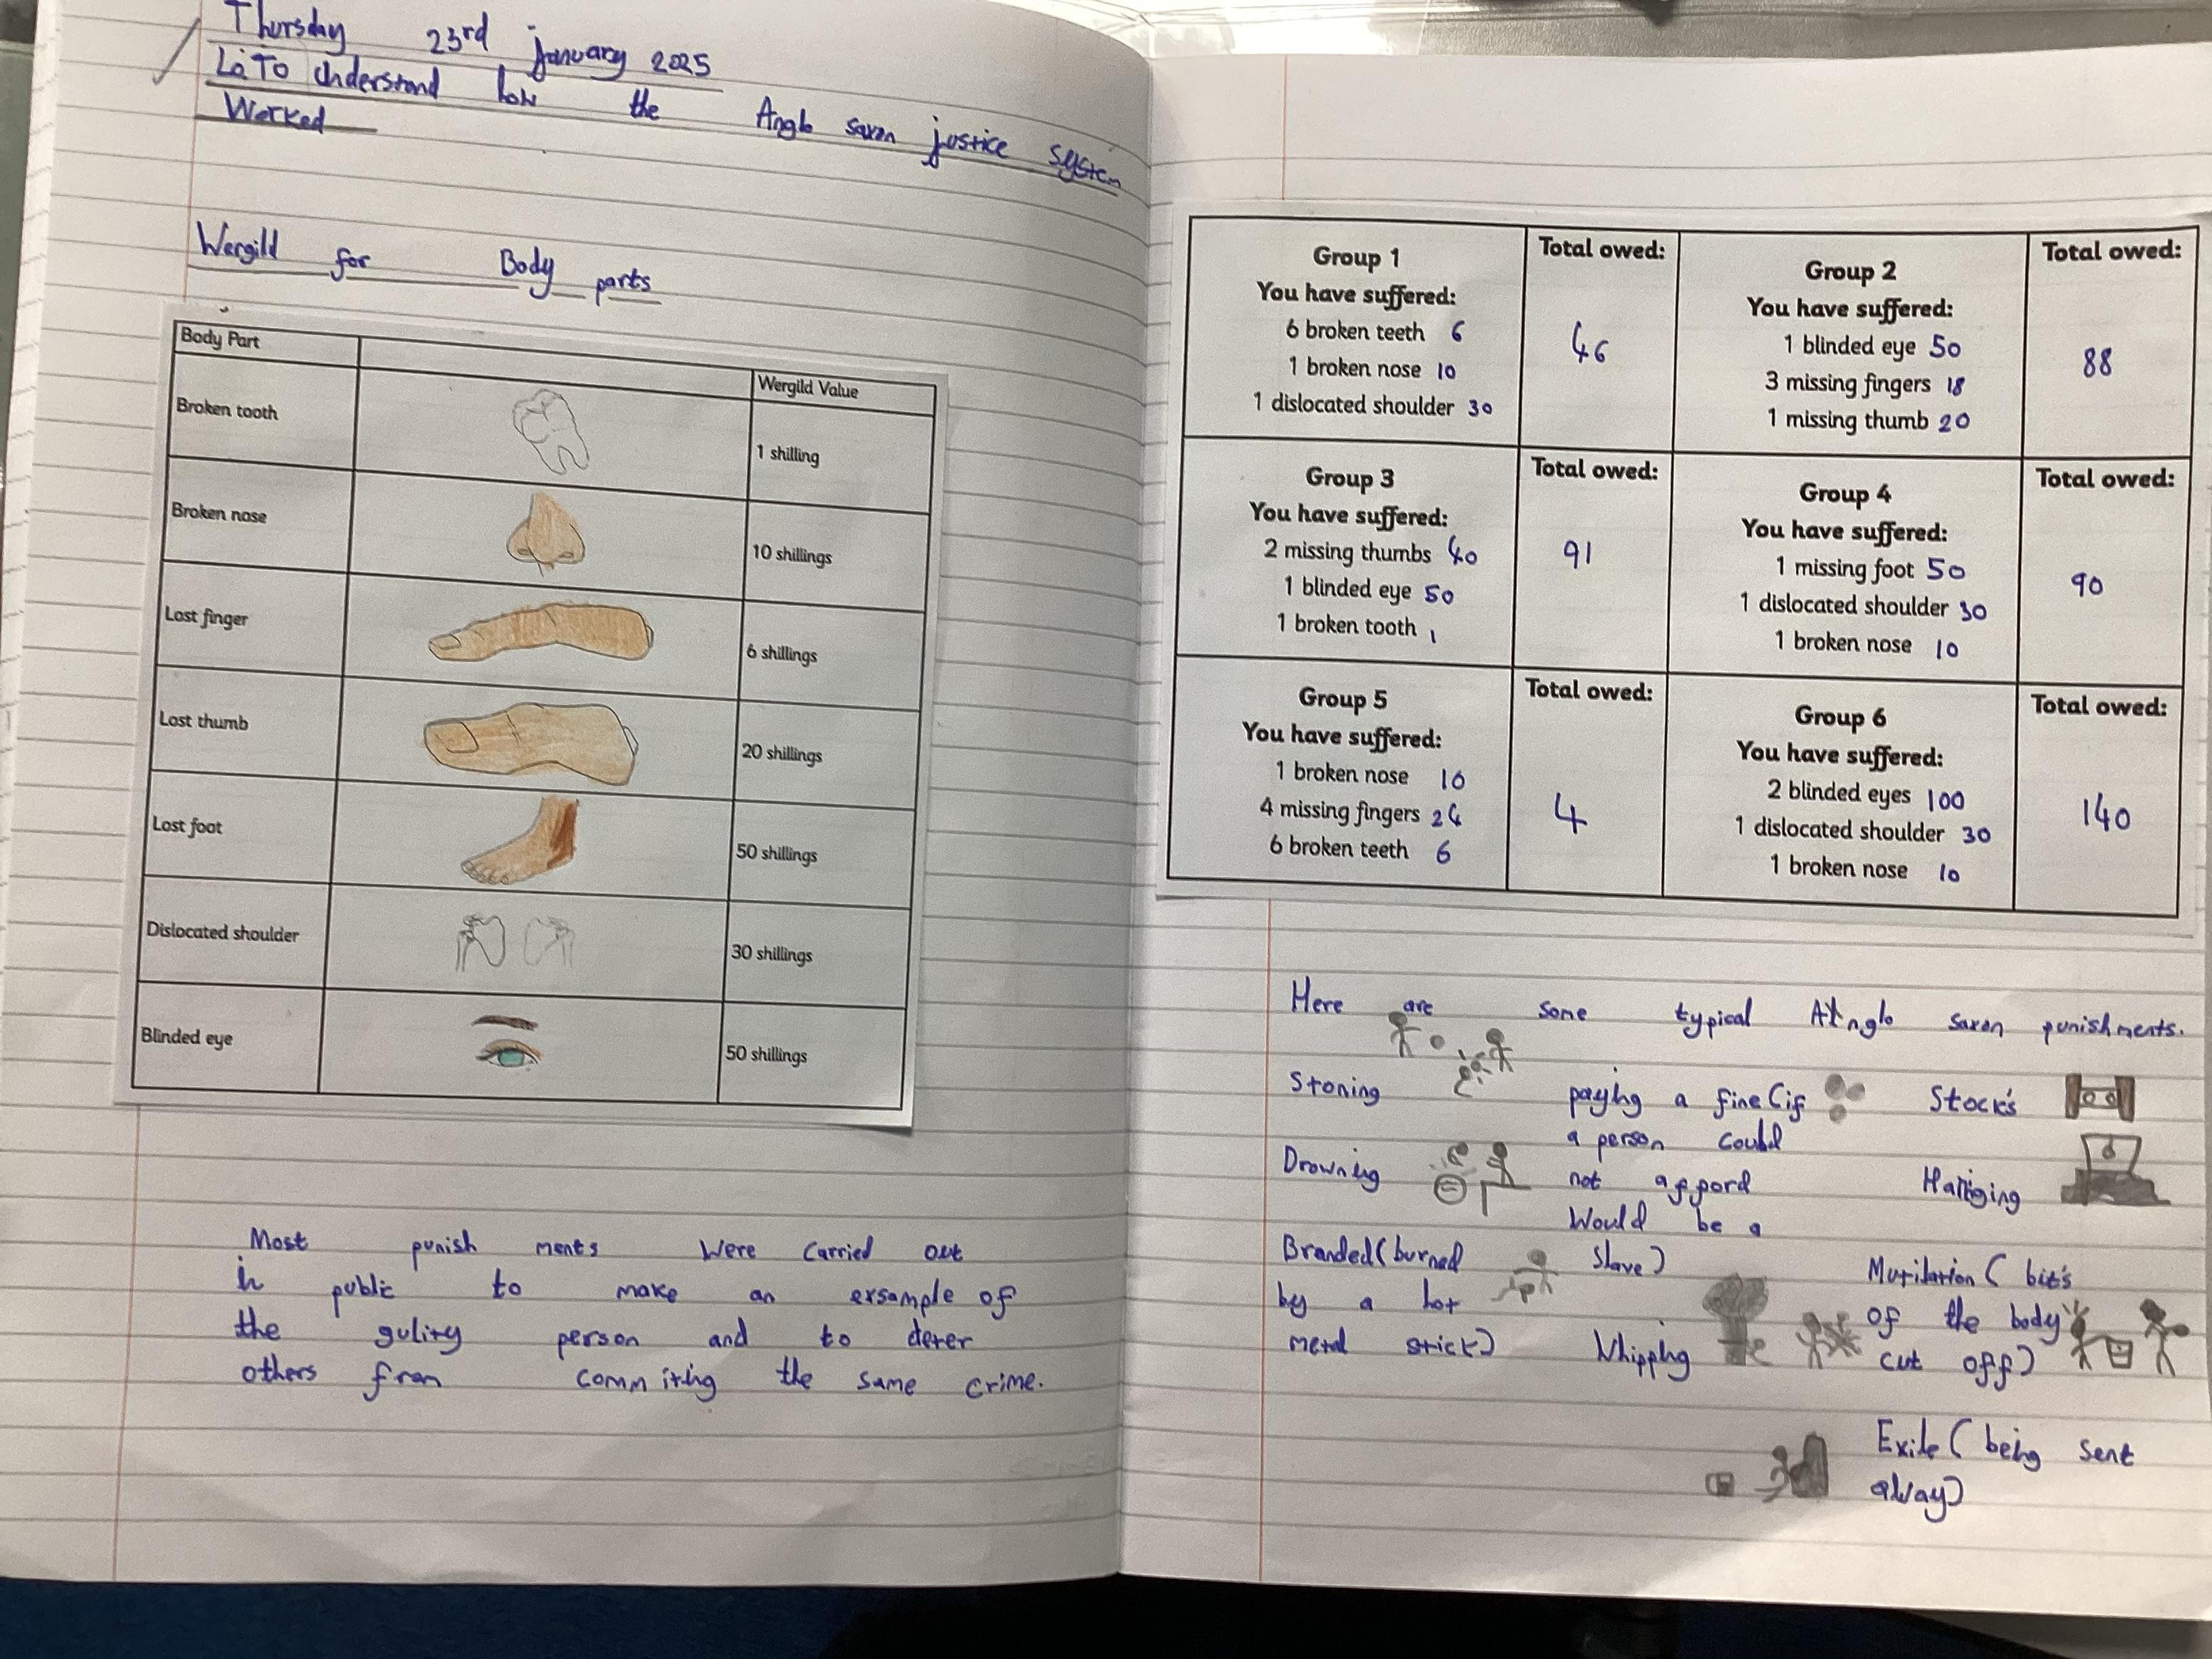 Thursday 23rd january 2025
Lo To understand how the Anglo saxon justice system
Worked
Wergild for Body parts
Body Part
Wergild Value
Broken tooth
1 shilling
Broken nose
10 shillings
Lost finger
6 shillings
Lost thumb
20 shillings
Lost foot
50 shillings
Dislocated shoulder
30 shillings
Blinded eye
50 shillings
Most punish ments were carried out
in public to make an exsample of
the gulity person and to deter
others from commiting the same crime.
Group 1
You have suffered:
6 broken teeth 6
1 broken nose 10
1 dislocated shoulder 30
Total owed:
46
Group 2
You have suffered:
1 blinded eye 50
3 missing fingers 18
1 missing thumb 20
Total owed:
88
Group 3
You have suffered:
2 missing thumbs 40
1 blinded eye 50
1 broken tooth 1
Total owed:
91
Group 4
You have suffered:
1 missing foot 50
1 dislocated shoulder 30
1 broken nose 10
Total owed:
90
Group 5
You have suffered:
1 broken nose 10
4 missing fingers 24
6 broken teeth 6
Total owed:
4
Group 6
You have suffered:
2 blinded eyes 100
1 dislocated shoulder 30
1 broken nose 10
Total owed:
140
Here are some typical Anglo saxon punishments.
Stoning
paying a fine (if
a person could
not afford
would be a
slave)
Stock's
Drowning
Hanging
Branded (burned
by a hot
metal stick)
Whipping
Mutilation (bit's
of the body
cut off)
Exile (being sent
away)